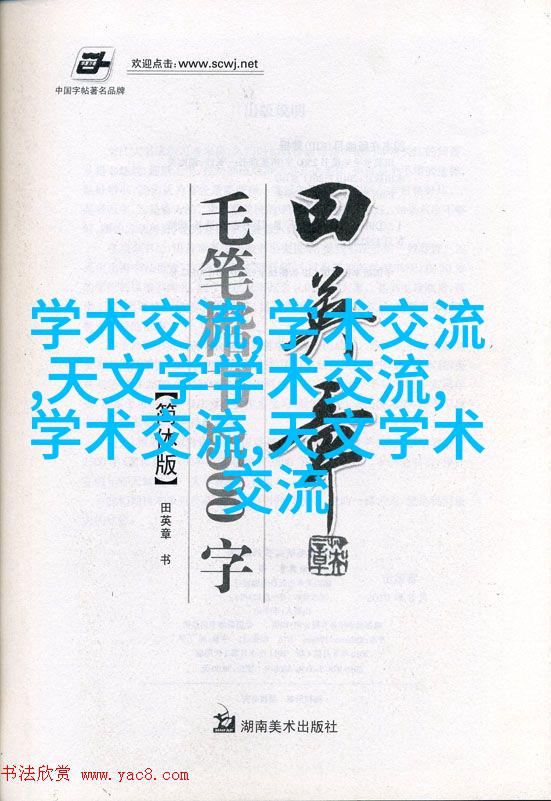 欢迎点击:www.scwj.net
中国字帖著名品牌
田英章
毛笔楷书 字
【简体版】
田英章 书
学术交流,学术交流
,天文学学术交流,
学术交流,天文学术
交流
湖南美术出版社
书法欣赏 www.yac8.com